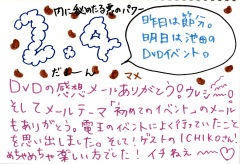 内に秘めたる鬼のパワー
2.4
だまーん
マメ
昨日は節分。
明日は池田の
DVDイベント。
DVDの感想メールありがとう♡ウレシー♡
そしてメールテーマ「初めてのイベント」のメール
もありがとう。電王のイベントによく行っていたこと
を思い出しました。そして!ゲストのICHIKOさん!
めちゃめちゃ楽しい方でした!イチねぇ〜♡